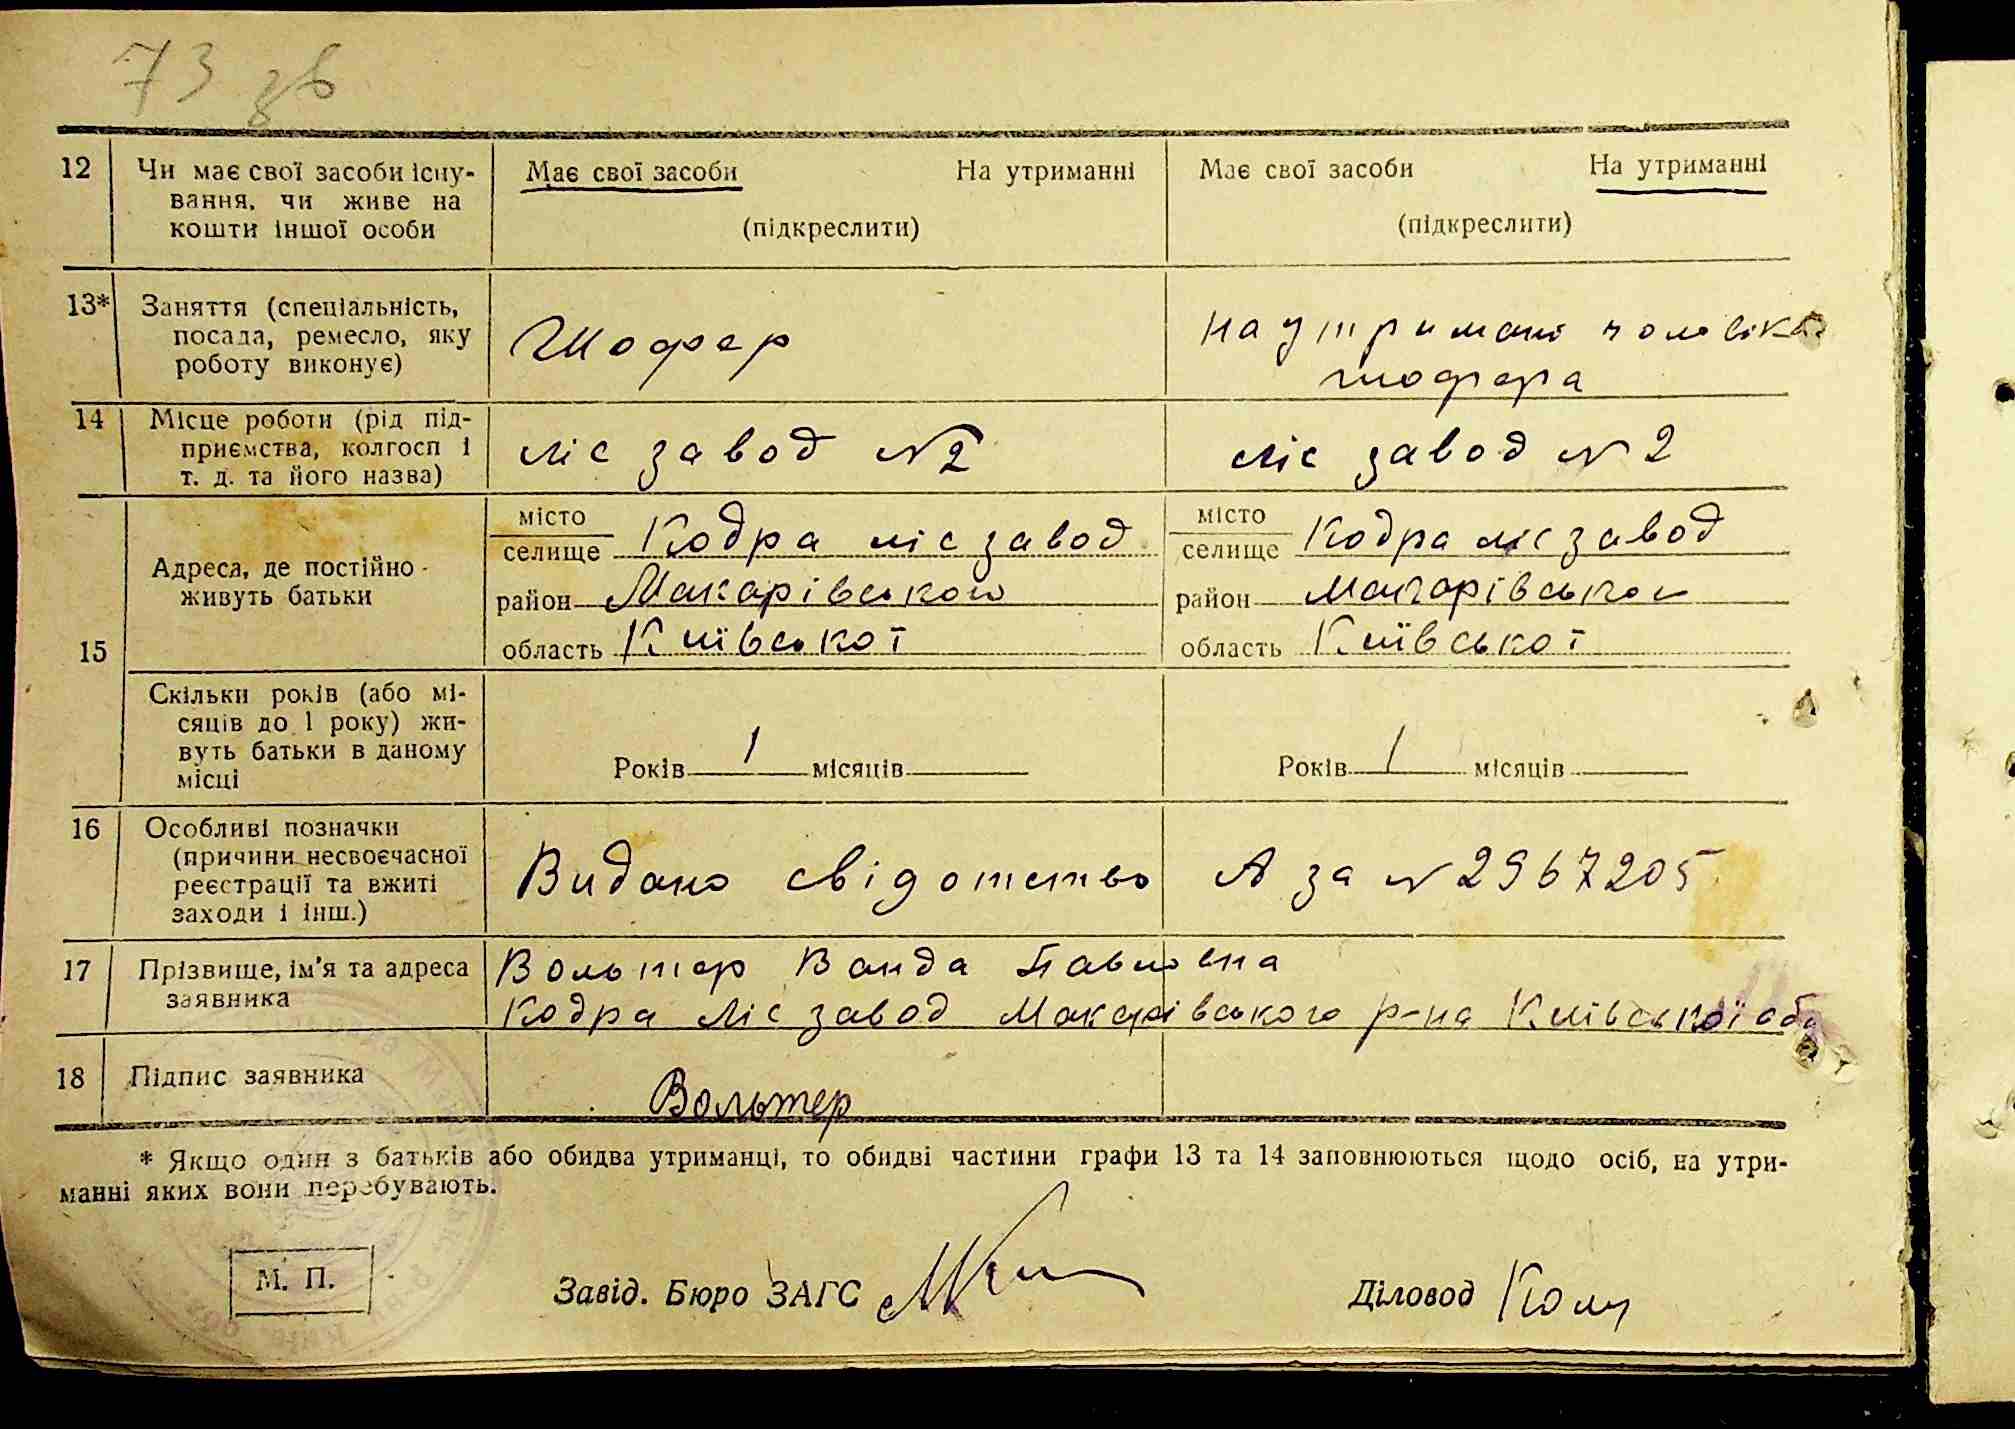 73 зв
12 Чи має свої засоби існу- Має свої засоби На утриманні Має свої засоби На утриманні
вання, чи живе на
кошти іншої особи (підкреслити) (підкреслити)
13* Заняття (спеціальність,
посада, ремесло, яку Шофер на утримані чоловіка
роботу виконує) шофера
14 Місце роботи (рід під-
приємства, колгосп і ліс завод № 2 ліс завод № 2
т. д. та його назва)
15 Адреса, де постійно
живуть батьки
місто
селище Кодра ліс завод
район Макарівського
область Київської
місто
селище Кодра ліс завод
район Макарівського
область Київської
Скільки років (або мі-
сяців до 1 року) жи-
вуть батьки в даному
місці
Років 1 місяців Років 1 місяців
16 Особливі позначки
(причини несвоєчасної
реєстрації та вжиті
заходи і інш.)
Видано свідотство А за № 2967205
17 Прізвище, ім'я та адреса
заявника
Вольтер Ванда Павловна
Кодра ліс завод Макарівського р-на Київської обл
18 Підпис заявника Вольтер
* Якщо один з батьків або обидва утриманці, то обидві частини графи 13 та 14 заповнюються щодо осіб, на утри-
манні яких вони перебувають.
М. П.
Завід. Бюро ЗАГС Діловод